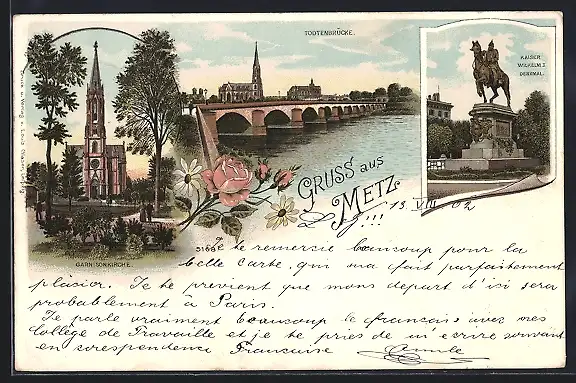 TODTENBRÜCKE.
KAISER
WILHELM I
DENKMAL.
GRUSS aus
METZ
!!! 13 VIII 02
GARNISONKIRCHE.
3168
Je te remercie beaucoup pour la
belle Carte, qui ma fait parfaitement
plaisir. Je te previent que mons depart d'ici sera
probablement à Paris.
Je parle vraiment beaucoup le français avec mes
Collège de Travaille et je te pries de m'ecrire souvant
en corespondence Francuise